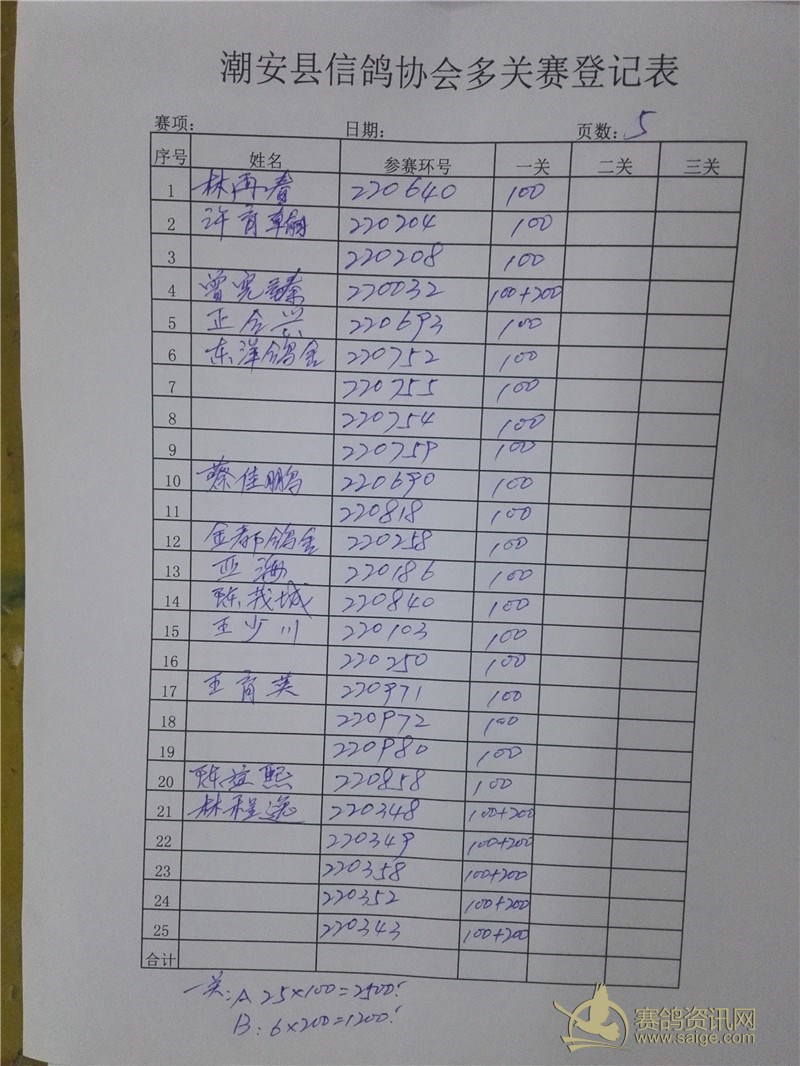 潮安县信鸽协会多关赛登记表
赛项: 日期: 页数: 5
序号 姓名 参赛环号 一关 二关 三关
1 林再春 220640 100
2 许育翰 220204 100
3 220208 100
4 曾宪臻 220032 100+200
5 正合兴 220693 100
6 东洋鸽舍 220752 100
7 220755 100
8 220754 100
9 220759 100
10 蔡佳鹏 220690 100
11 220818 100
12 金都鸽舍 220258 100
13 亚海 220186 100
14 陈茂城 220840 100
15 王少川 220103 100
16 220250 100
17 王育英 220971 100
18 220972 100
19 220980 100
20 陈益熙 220858 100
21 林程 220348 100+200
22 220349 100+200
23 220358 100+200
24 220352 100+200
25 220343 100+200
合计
一关: A 25×100=2500!
B: 6×200=1200!
赛鸽资讯网
www.saige.com